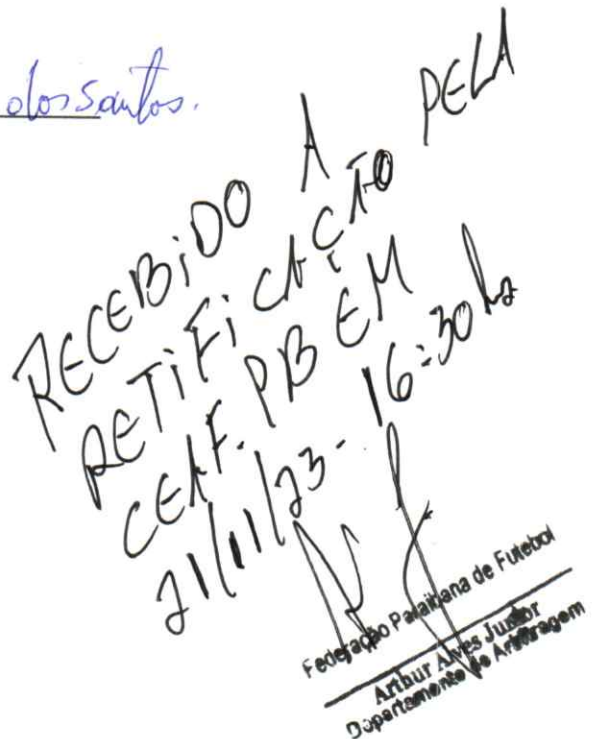 dos Santos.
RECEBIDO A
RETIFICAÇÃO PELA
CEAF. PB EM
21/11/23 - 16:30 hs
Federação Paraibana de Futebol
Arthur Alves Junior
Departamento de Arbitragem